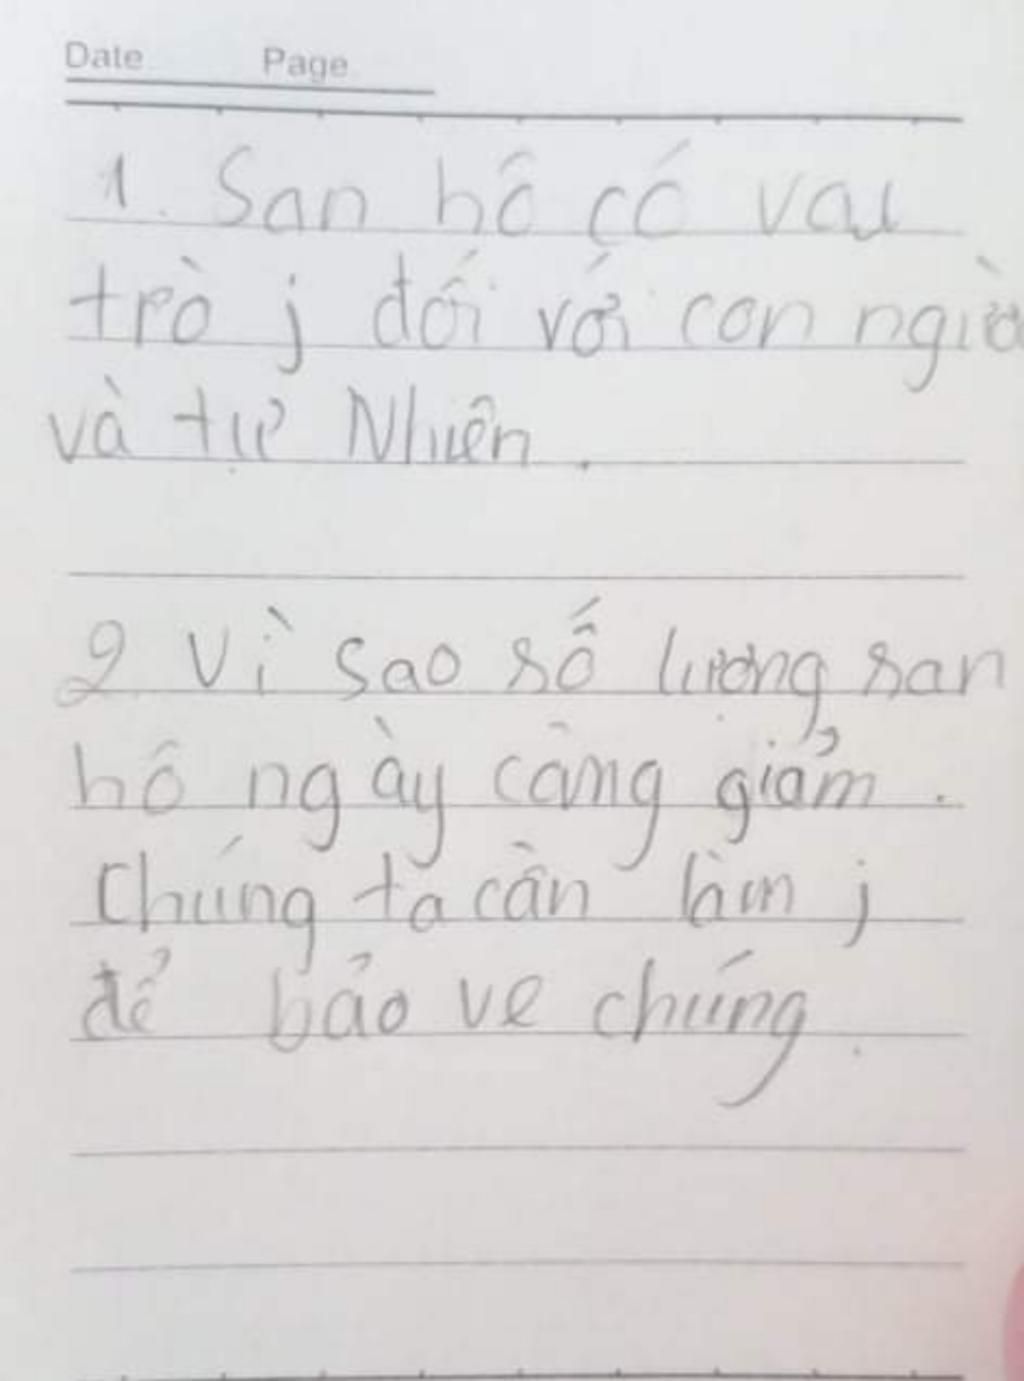 Date Page
1. San hô có vai
trò j đối với con ngườ
và tự Nhiên.
2 Vì sao số lượng san
hô ngày càng giảm.
Chúng ta cần làm j
để bảo ve chúng.